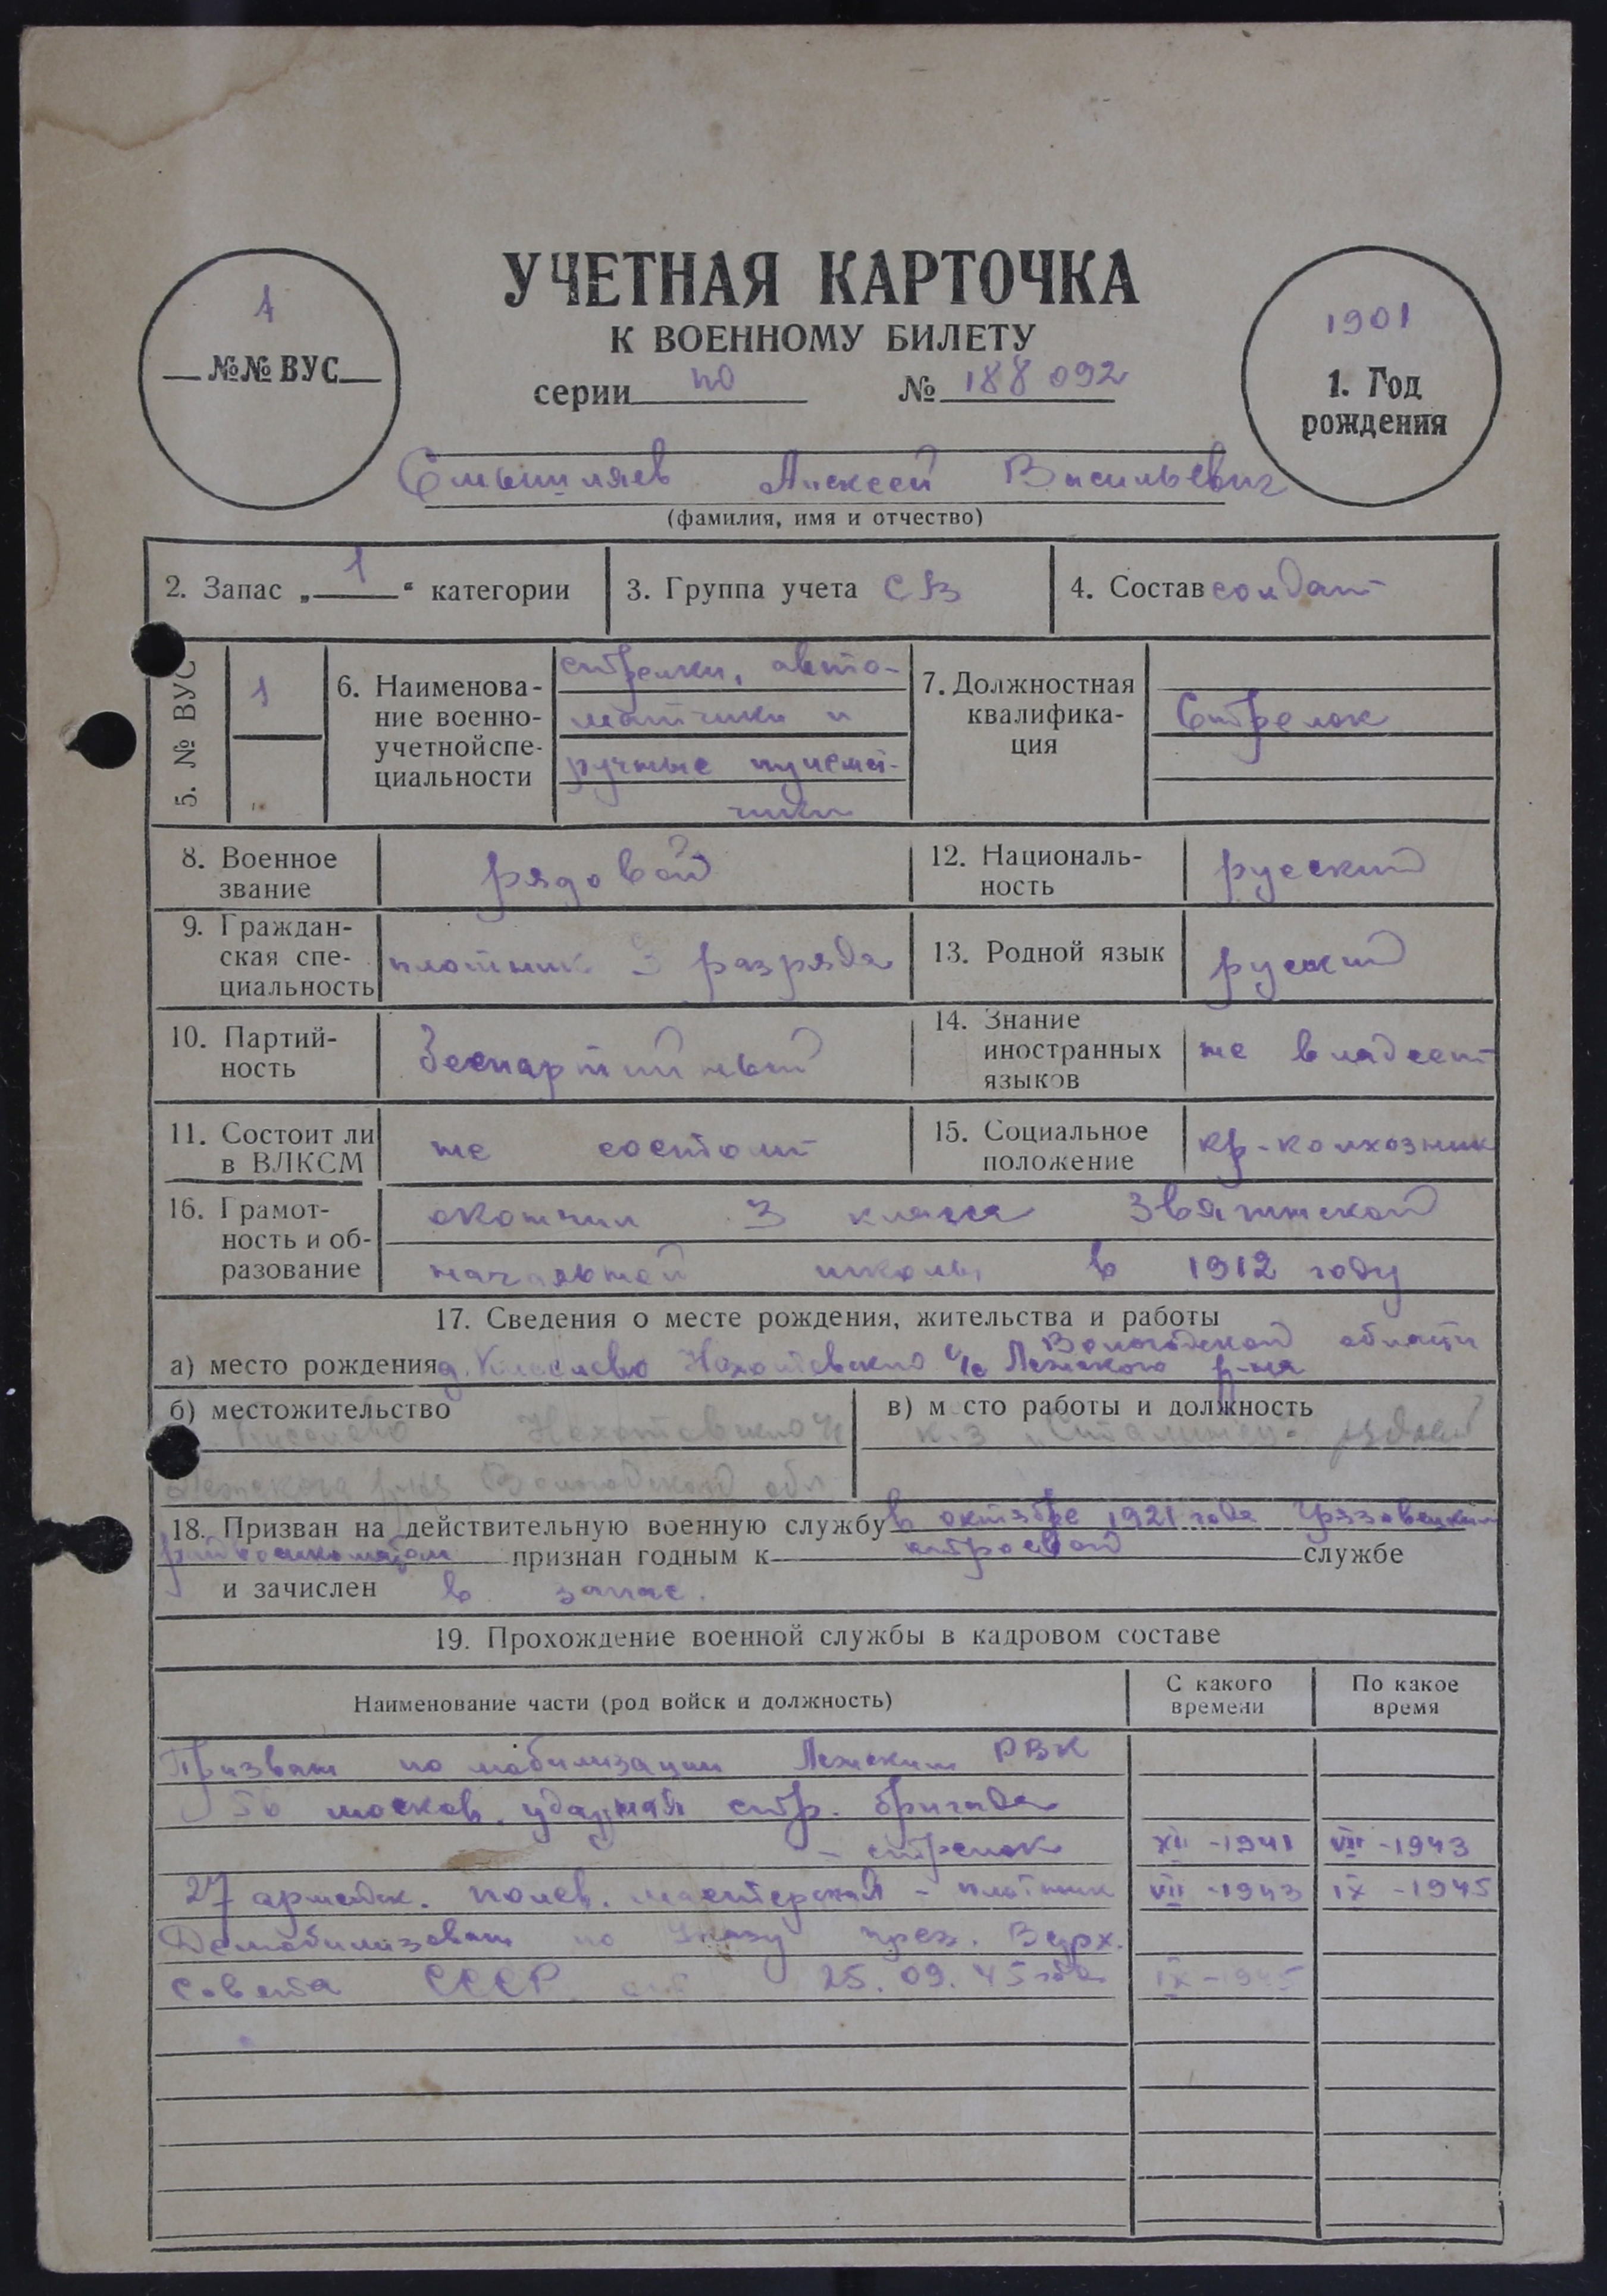 1
№№ ВУС
УЧЕТНАЯ КАРТОЧКА
К ВОЕННОМУ БИЛЕТУ
серии по № 188 092
1901
1. Год
рождения
Смышляев Алексей Васильевич
(фамилия, имя и отчество)
2. Запас „1“ категории
3. Группа учета СВ
4. Состав солдат
5. № ВУС
1
6. Наименова-
ние военно-
учетной спе-
циальности
стрелки, авто-
матчики и
ручные пулемет-
чики
7. Должностная
квалифика-
ция
Стрелок
8. Военное
звание
рядовой
12. Националь-
ность
русский
9. Граждан-
ская спе-
циальность
плотник 3 разряда
13. Родной язык
русский
10. Партий-
ность
беспартийный
14. Знание
иностранных
языков
не владеет
11. Состоит ли
в ВЛКСМ
не состоит
15. Социальное
положение
кр-колхозник
16. Грамот-
ность и об-
разование
окончил 3 класса
начальной школы в 1912 году
17. Сведения о месте рождения, жительства и работы
Вологодской области
а) место рождения д. с/с Лежского р-на
б) местожительство
Лежского р-на Вологодской обл
в) место работы и должность
к-з „Сталинец“
18. Призван на действительную военную службу в октябре 1921 года Грязовецким
райвоенкоматом признан годным к строевой службе
и зачислен в запас.
19. Прохождение военной службы в кадровом составе
Наименование части (род войск и должность)
С какого
времени
По какое
время
Призван по мобилизации Лежским РВК
56 москов. ударная стр. бригада
– стрелок XII -1941 VII -1943
27 армейск. полев. мастерская – плотник VII -1943 IX -1945
Демобилизован по Указу през. Верх.
Совета СССР от 25.09.45 года IX -1945